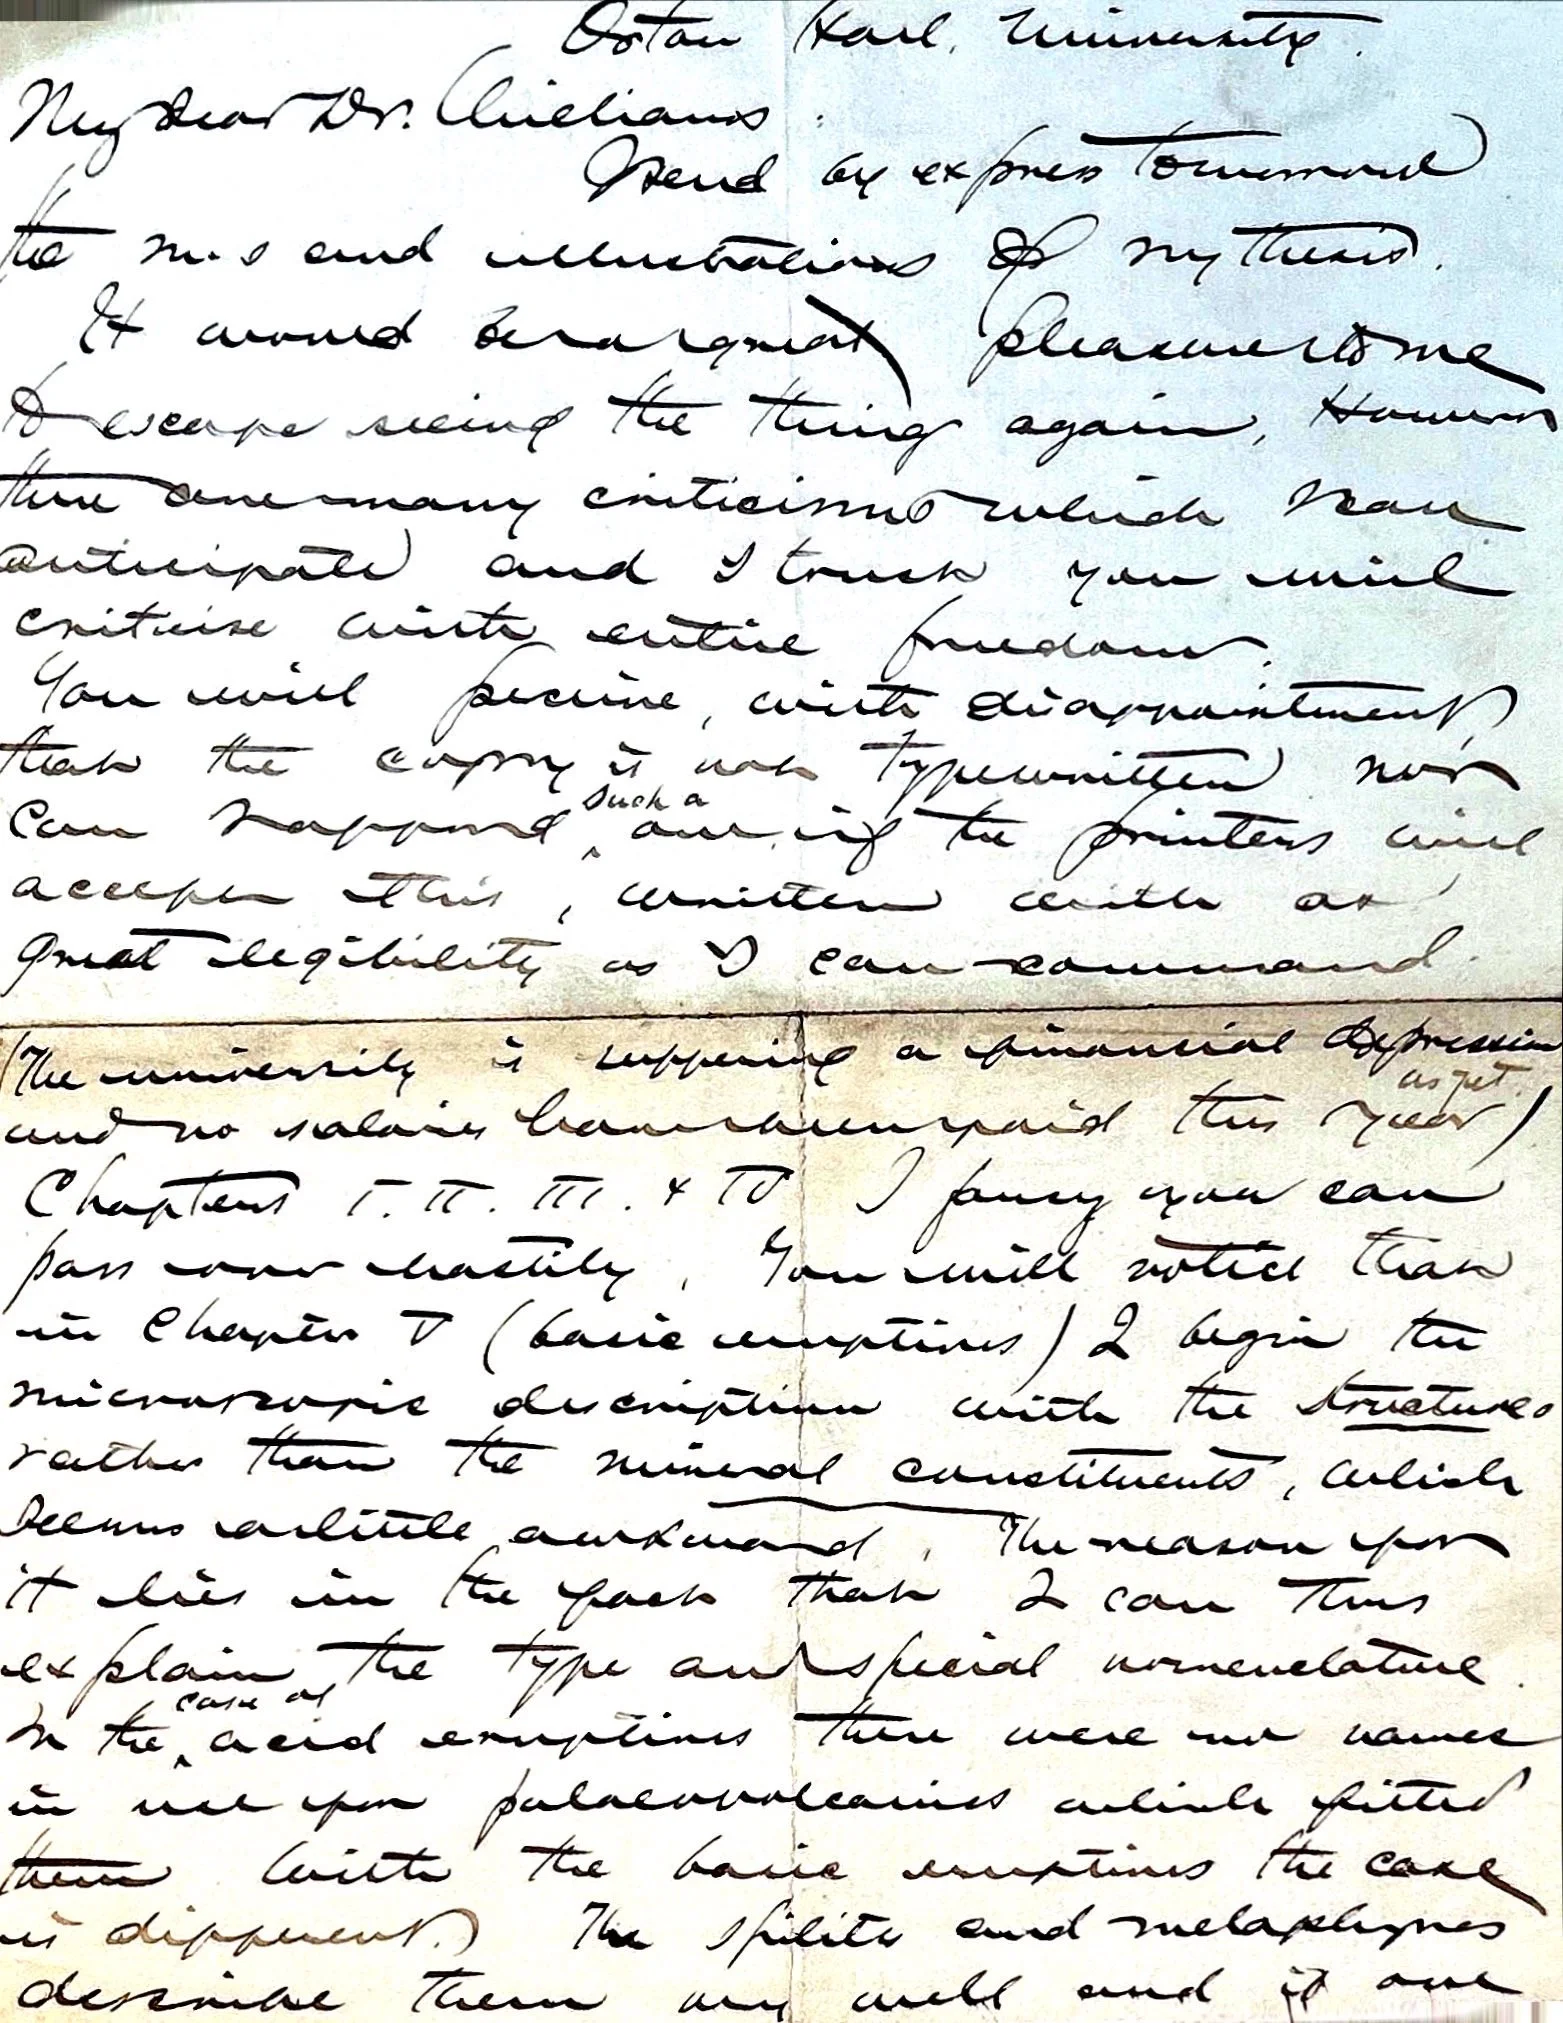 Orton Hall. University.
My dear Dr. Williams:
I send by express tomorrow
the m.s and illustrations of my thesis.
It would be a great pleasure to me
to escape seeing the thing again. However
there are many criticisms which I can
anticipate and I trust you will
criticise with entire freedom.
You will perceive, with disappointment,
that the copy is not typewritten nor
can I afford such a one, if the printers will
accept this, written with as
great legibility as I can command.
(The university is suffering a financial depression
and no salaries have been paid this year as yet)
Chapters I. II. III. & IV I fancy you can
pass over hastily. You will notice that
in Chapter V (basic eruptives) I begin the
microscopic description with the structures
rather than the mineral constituents, which
seems a little awkward. The reason for
it lies in the fact that I can thus
explain the type and special nomenclature.
In the case of acid eruptives there were no names
in use for palaeovolcanics which fitted
them with the basic eruptives the case
is different. The spilites and melaphyres
describe them very well and if one